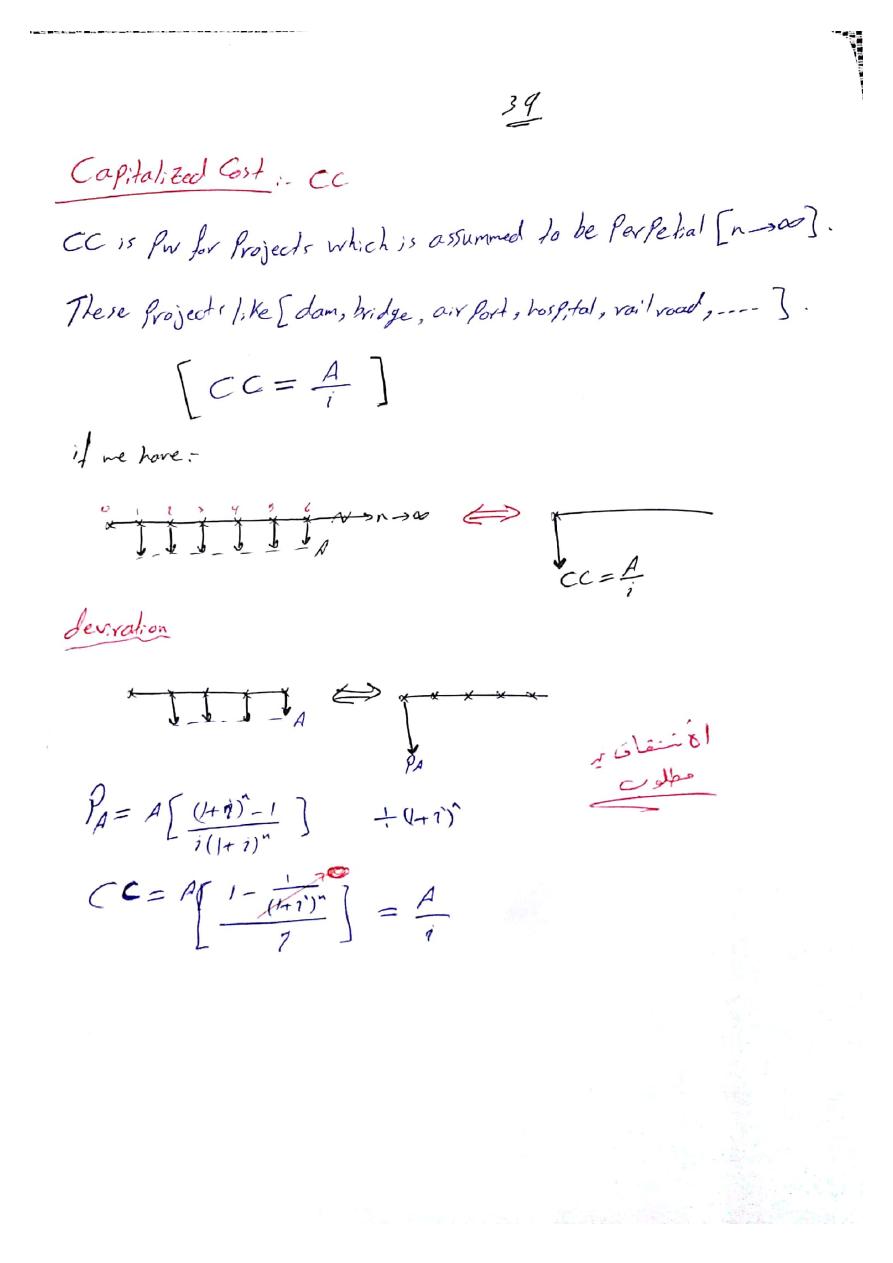 39
Capitalized Cost :- CC
CC is Pw for Projects which is assummed to be Perpetial [n→∞].
These Projects like [dam, bridge, air Port, hospital, rail road, ....].
[CC = A/i]
if we have:-
0 1 2 3 4 5 6 n→∞ ⇔
A
CC = A/i
deviration
⇔
A
P_A
الأشتقاق
مطلوب
P_A = A[((1+i)^n - 1)/(i(1+i)^n)] ÷ (1+i)^n
CC = A[(1 - 1/(1+i)^n)/i] = A/i